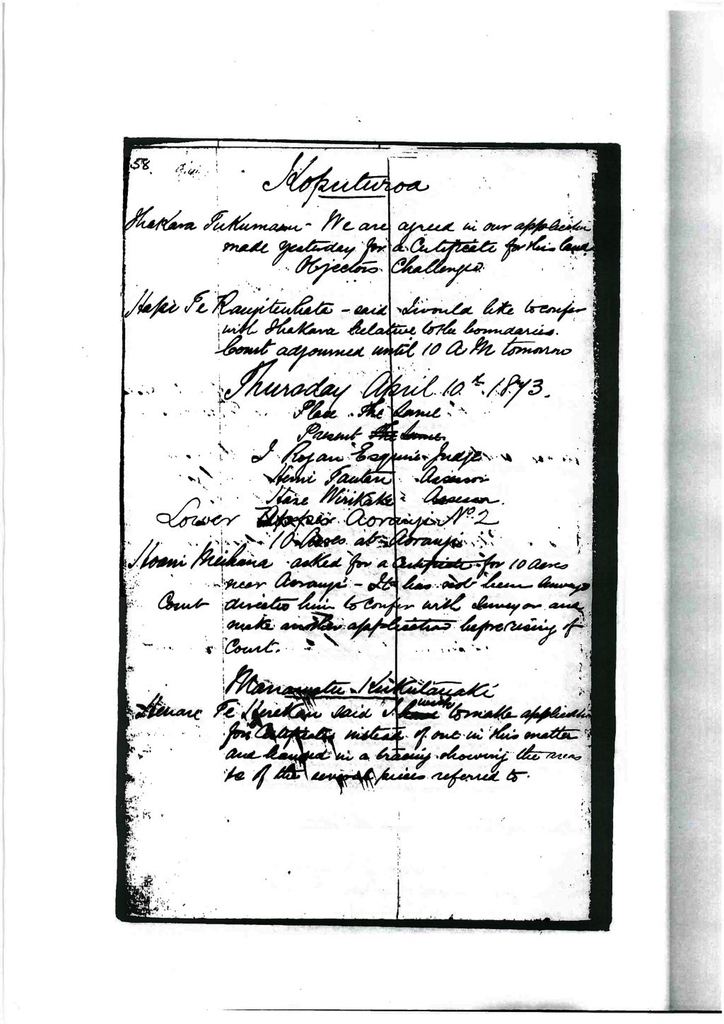 58
Koputuroa
Ihakara Tukumaru - We are agreed in our application
made yesterday for a Certificate for this land
Objectors Challenged
Hapi Te Rangitewhata - said I would like to confer
with Ihakara relative to the boundaries.
Court adjourned until 10 A M tomorrow
Thursday April 10th. 1873.
Place - The Same
Present The Same
J Rogan Esquire Judge
Hemi Tautari Assessor
Hare Wirikake - Assessor
Lower Aorangi No. 2
10 Acres at Aorangi
Hoani Meihana asked for a Certificate for 10 acres
near Aorangi - It has not been surveyed
Court directed him to confer with Surveyor and
make another application before rising of
Court.
Manawatu - Kukutauaki
Henare Te Herekau said I wish to make application
for Certificate instead of out in this matter
and handed in a tracing showing the areas
&c of the several pieces referred to.